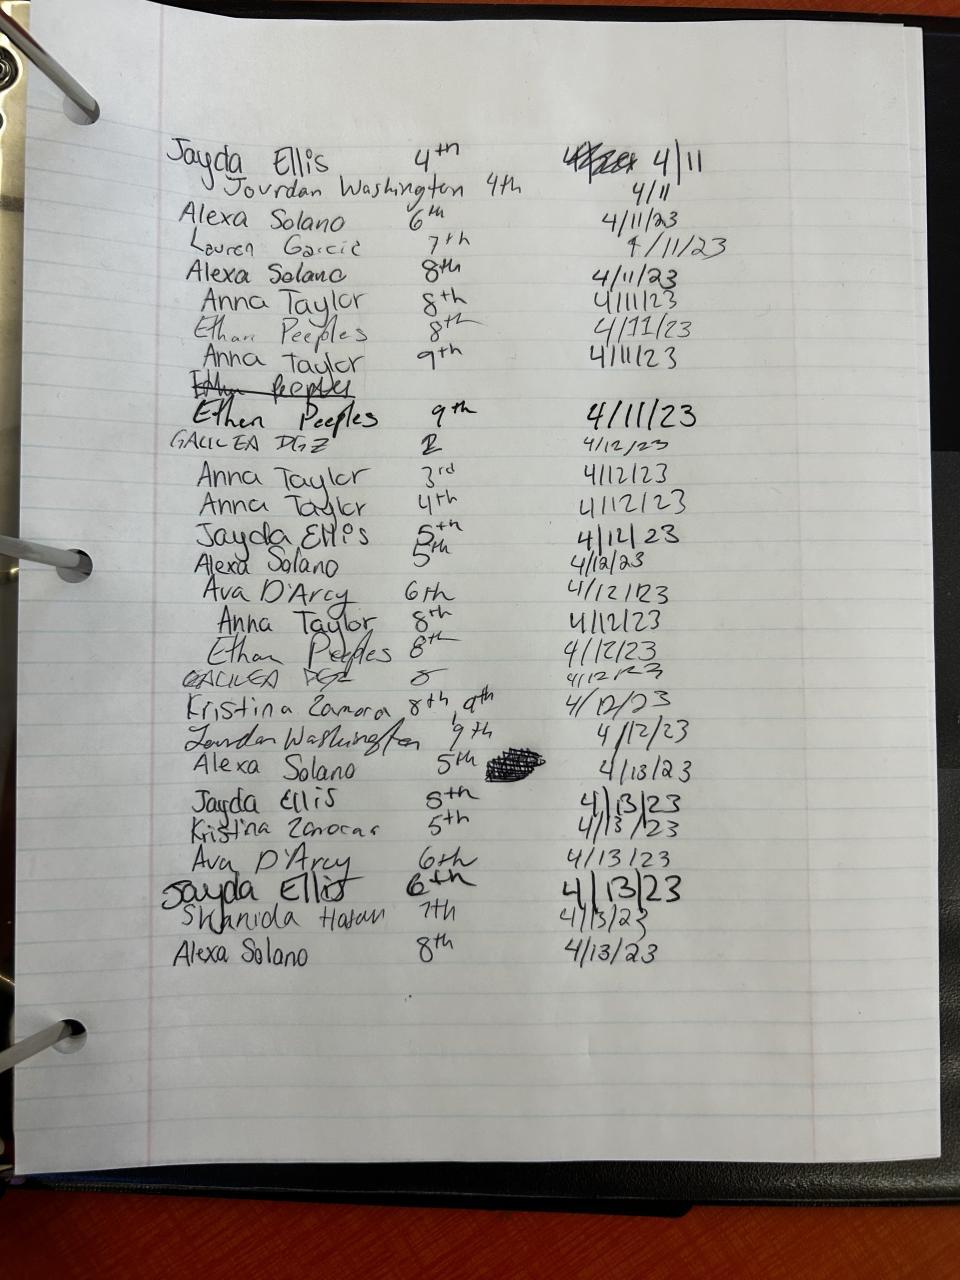 Jayda Ellis 4th 4/11
Jourdan Washington 4th 4/11
Alexa Solano 6th 4/11/23
Lauren Garcia 7th 4/11/23
Alexa Solano 8th 4/11/23
Anna Taylor 8th 4/11/23
Ethan Peeples 8th 4/11/23
Anna Taylor 9th 4/11/23
Peeples
Ethan Peeples 9th 4/11/23
GALILEA DGZ 2 4/12/23
Anna Taylor 3rd 4/12/23
Anna Taylor 4th 4/12/23
Jayda Ellis 5th 4/12/23
Alexa Solano 5th 4/12/23
Ava D'Arcy 6th 4/12/23
Anna Taylor 8th 4/12/23
Ethan Peeples 8th 4/12/23
GALILEA DGZ 8 4/12/23
Kristina Zamora 8th, 9th 4/12/23
Jourdan Washington 9th 4/12/23
Alexa Solano 5th 4/13/23
Jayda Ellis 5th 4/13/23
Kristina 5th 4/13/23
Ava D'Arcy 6th 4/13/23
Jayda Ellis 6th 4/13/23
Hasan 7th 4/13/23
Alexa Solano 8th 4/13/23